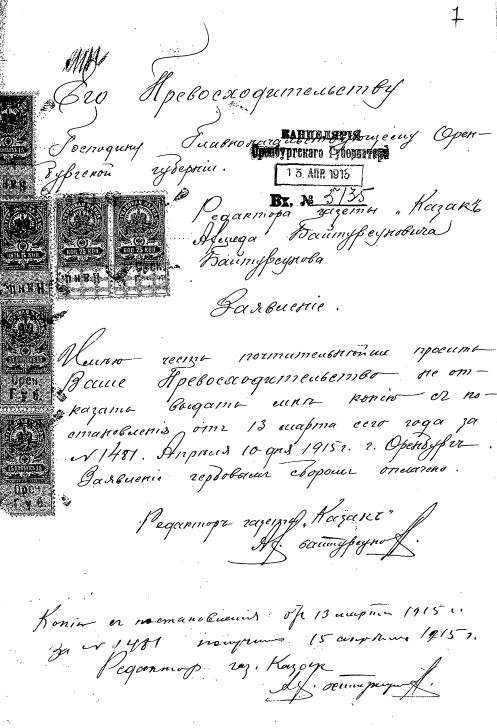 1
Его Превосходительству
Господину Главноначальствующему Орен-
бургской губернии.
КАНЦЕЛЯРІЯ
Оренбургскаго Губернатора
13 АПР. 1915
Вх. № 5135
Редактора газеты „Казакъ
Ахмеда Байтурсуновича
Байтурсунова
Заявленіе.
Имѣю честь почтительнѣйше просить
Ваше Превосходительство не от-
казать выдать мнѣ копію съ по-
становленія отъ 13 марта сего года за
№ 1481. Апрѣля 10 дня 1915 г. г. Оренбургъ.
Заявленіе гербовымъ сборомъ оплачено.
Редакторъ газеты „Казакъ"
А. Байтурсунов
Копію съ постановленія отъ 13 марта 1915 г.
за № 1481 получилъ 15 апрѣля 1915 г.
Редактор газ. Казак